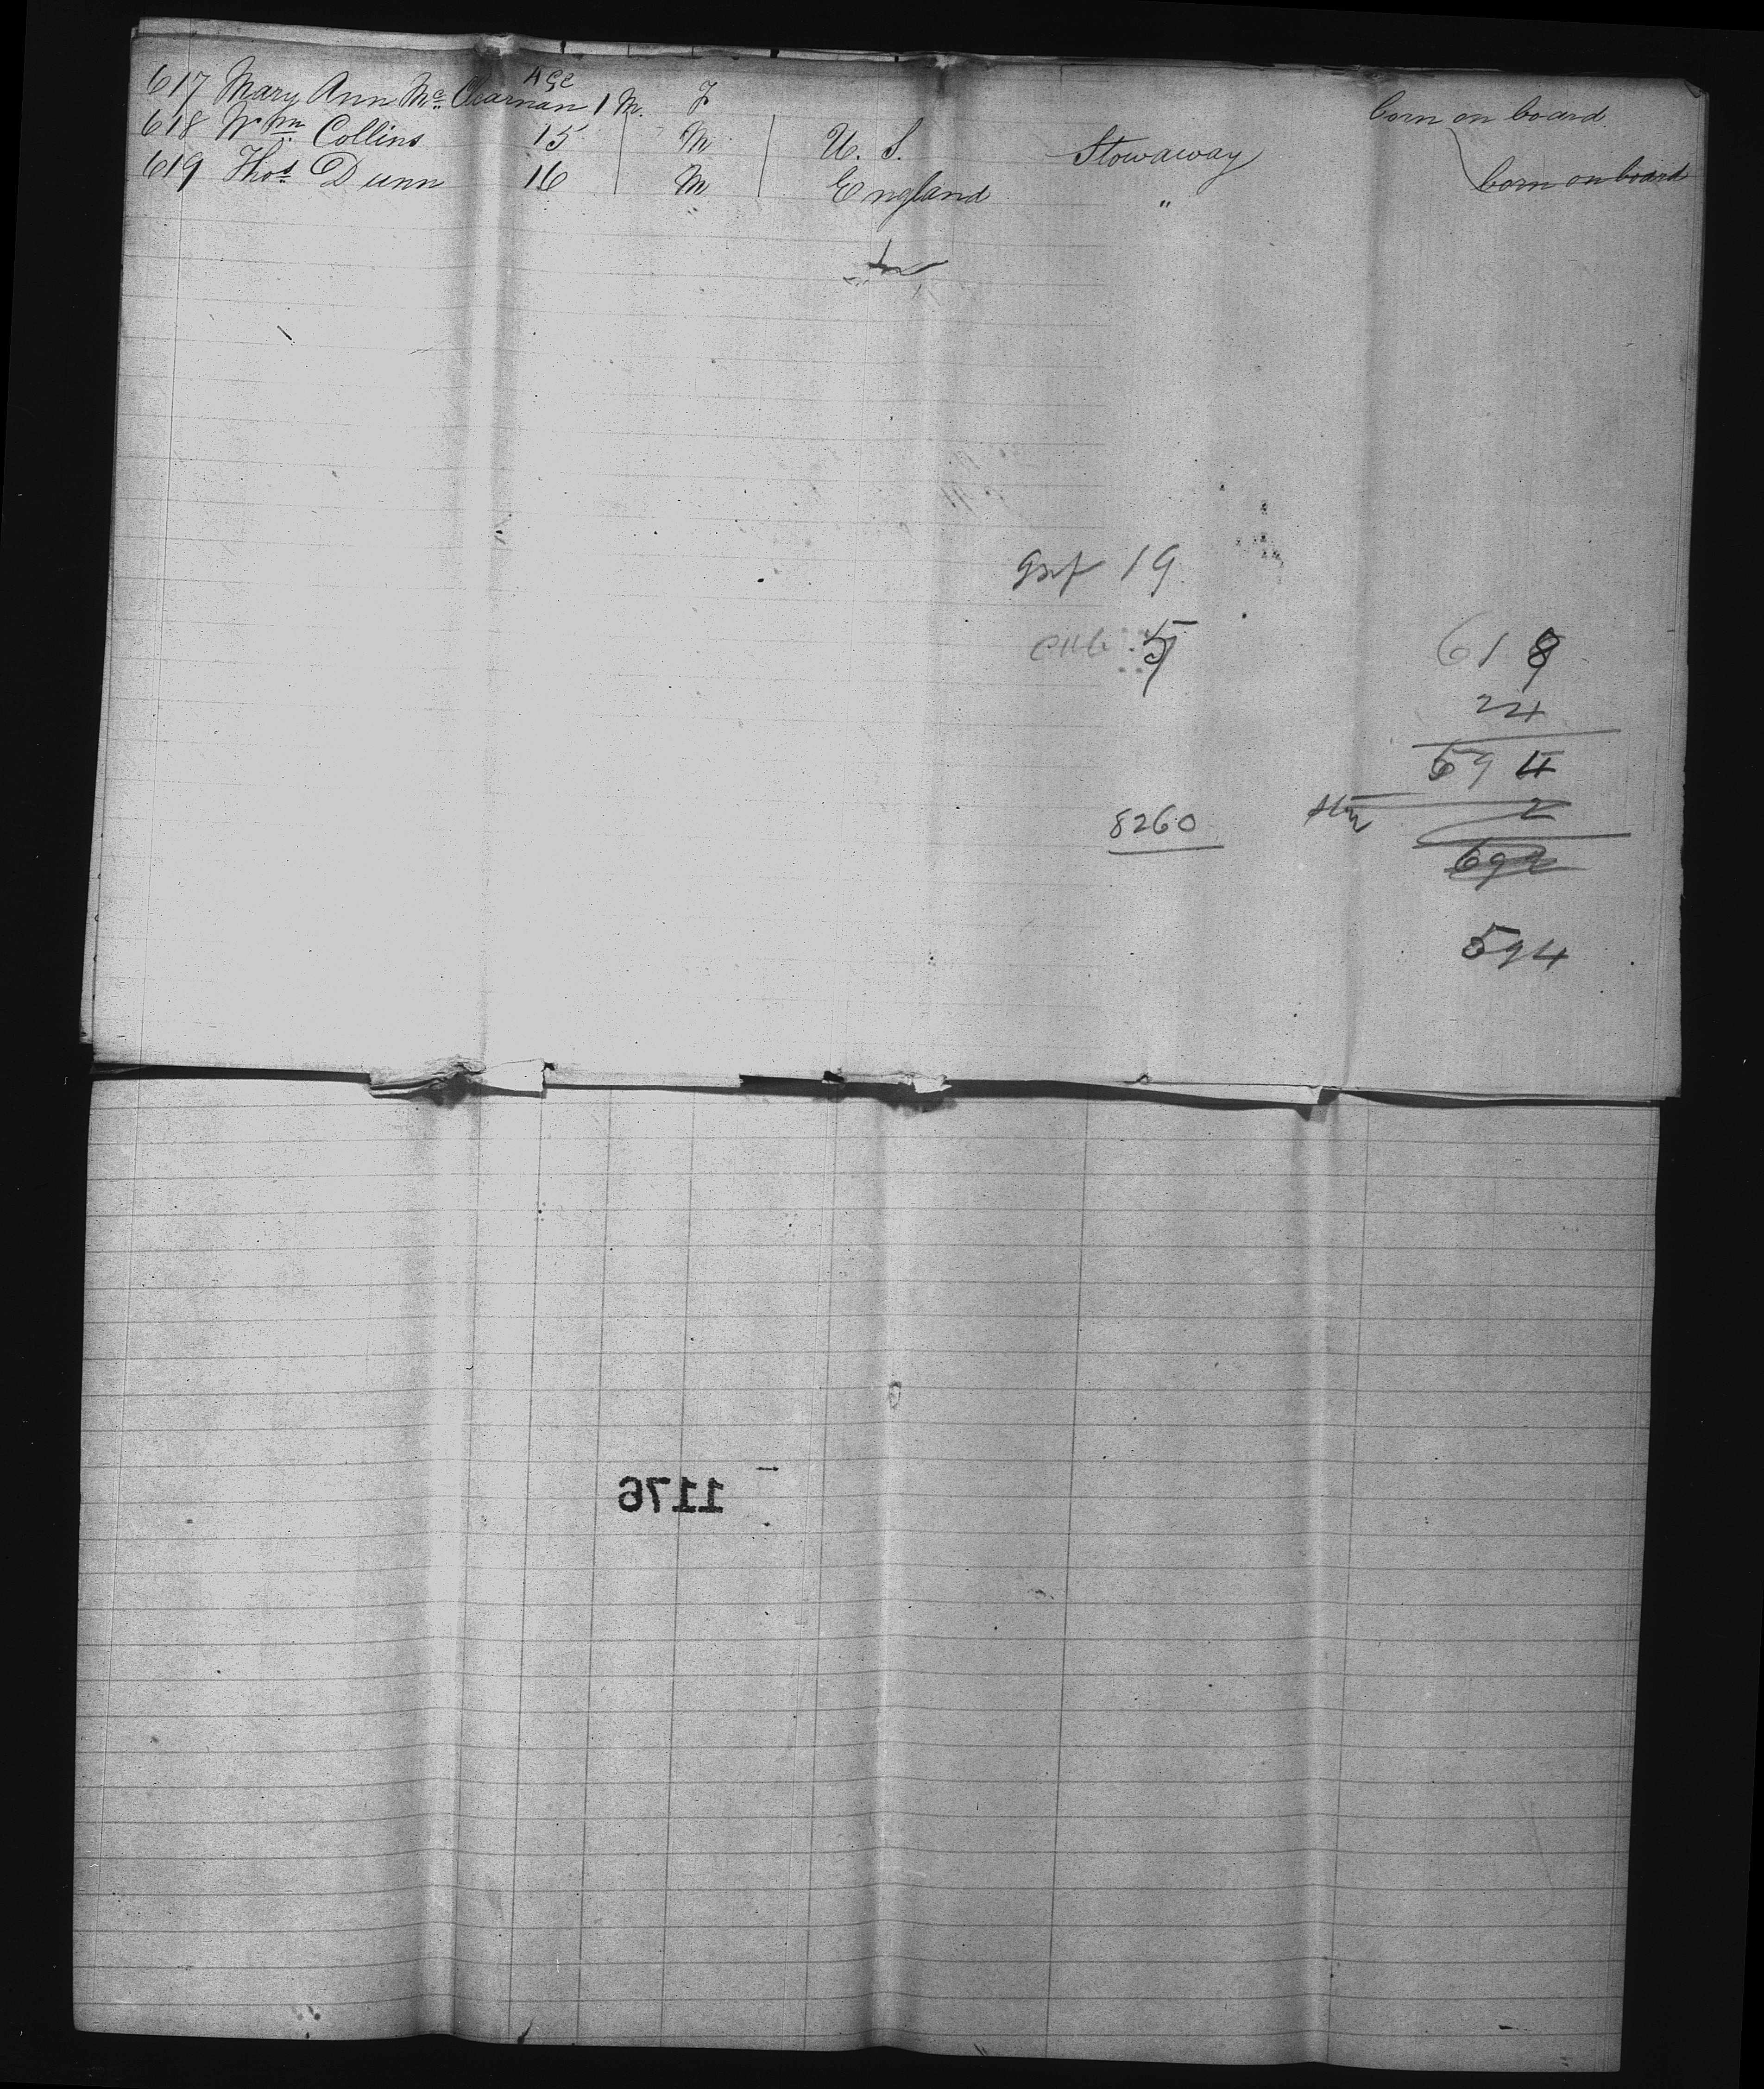 Age
617 Mary Ann Mc Clearnan 1 M. F born on board
618 Wm Collins 15 M U. S. Stowaway born on board
619 Thos Dunn 16 M England "
19
5
618
24
594
2
8260
692
594
1176